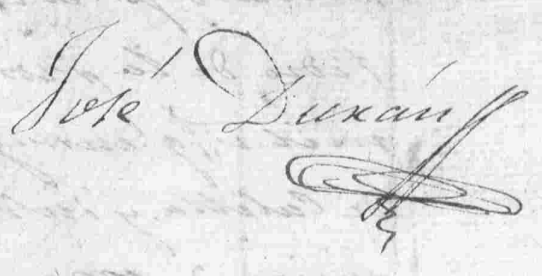 José Durán